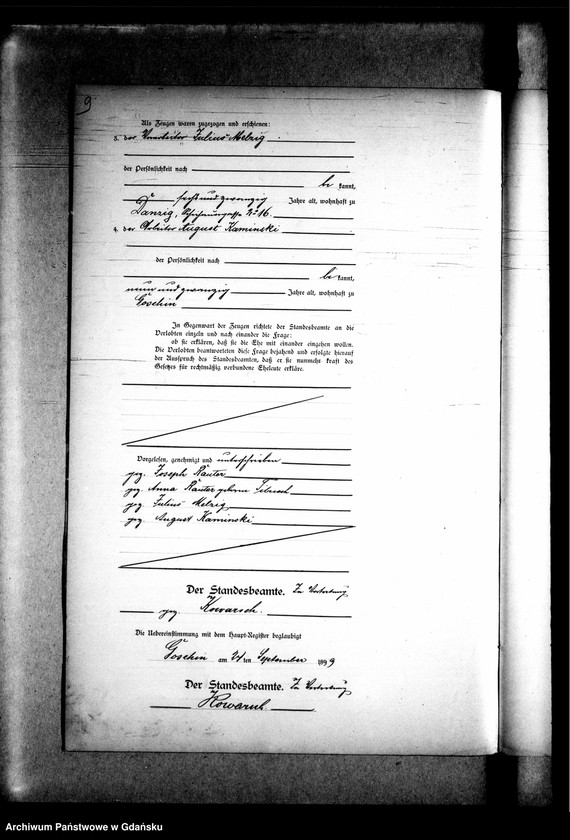 9
Als Zeugen waren zugezogen und erschienen:
3. der Vorarbeiter Julius Melzig
der Persönlichkeit nach
be kannt,
sechsundzwanzig Jahre alt, wohnhaft zu
Danzig, № 16.
4. der Arbeiter August Kaminski
der Persönlichkeit nach
be kannt,
neunundzwanzig Jahre alt, wohnhaft zu
Goschin
In Gegenwart der Zeugen richtete der Standesbeamte an die
Verlobten einzeln und nach einander die Frage:
ob sie erklären, daß sie die Ehe mit einander eingehen wollen.
Die Verlobten beantworteten diese Frage bejahend und erfolgte hierauf
der Ausspruch des Standesbeamten, daß er sie nunmehr kraft des
Gesetzes für rechtmäßig verbundene Eheleute erkläre.
Vorgelesen, genehmigt und unterschrieben
gez. Joseph Räuter
gez. Anna Räuter geborene
gez. Julius Melzig
gez. August Kaminski
Der Standesbeamte. In Vertretung
gez. Kowarsch.
Die Uebereinstimmung mit dem Haupt-Register beglaubigt
Goschin am 24 ten September 1899
Der Standesbeamte. In Vertretung
Kowarsch
Archiwum Państwowe w Gdańsku